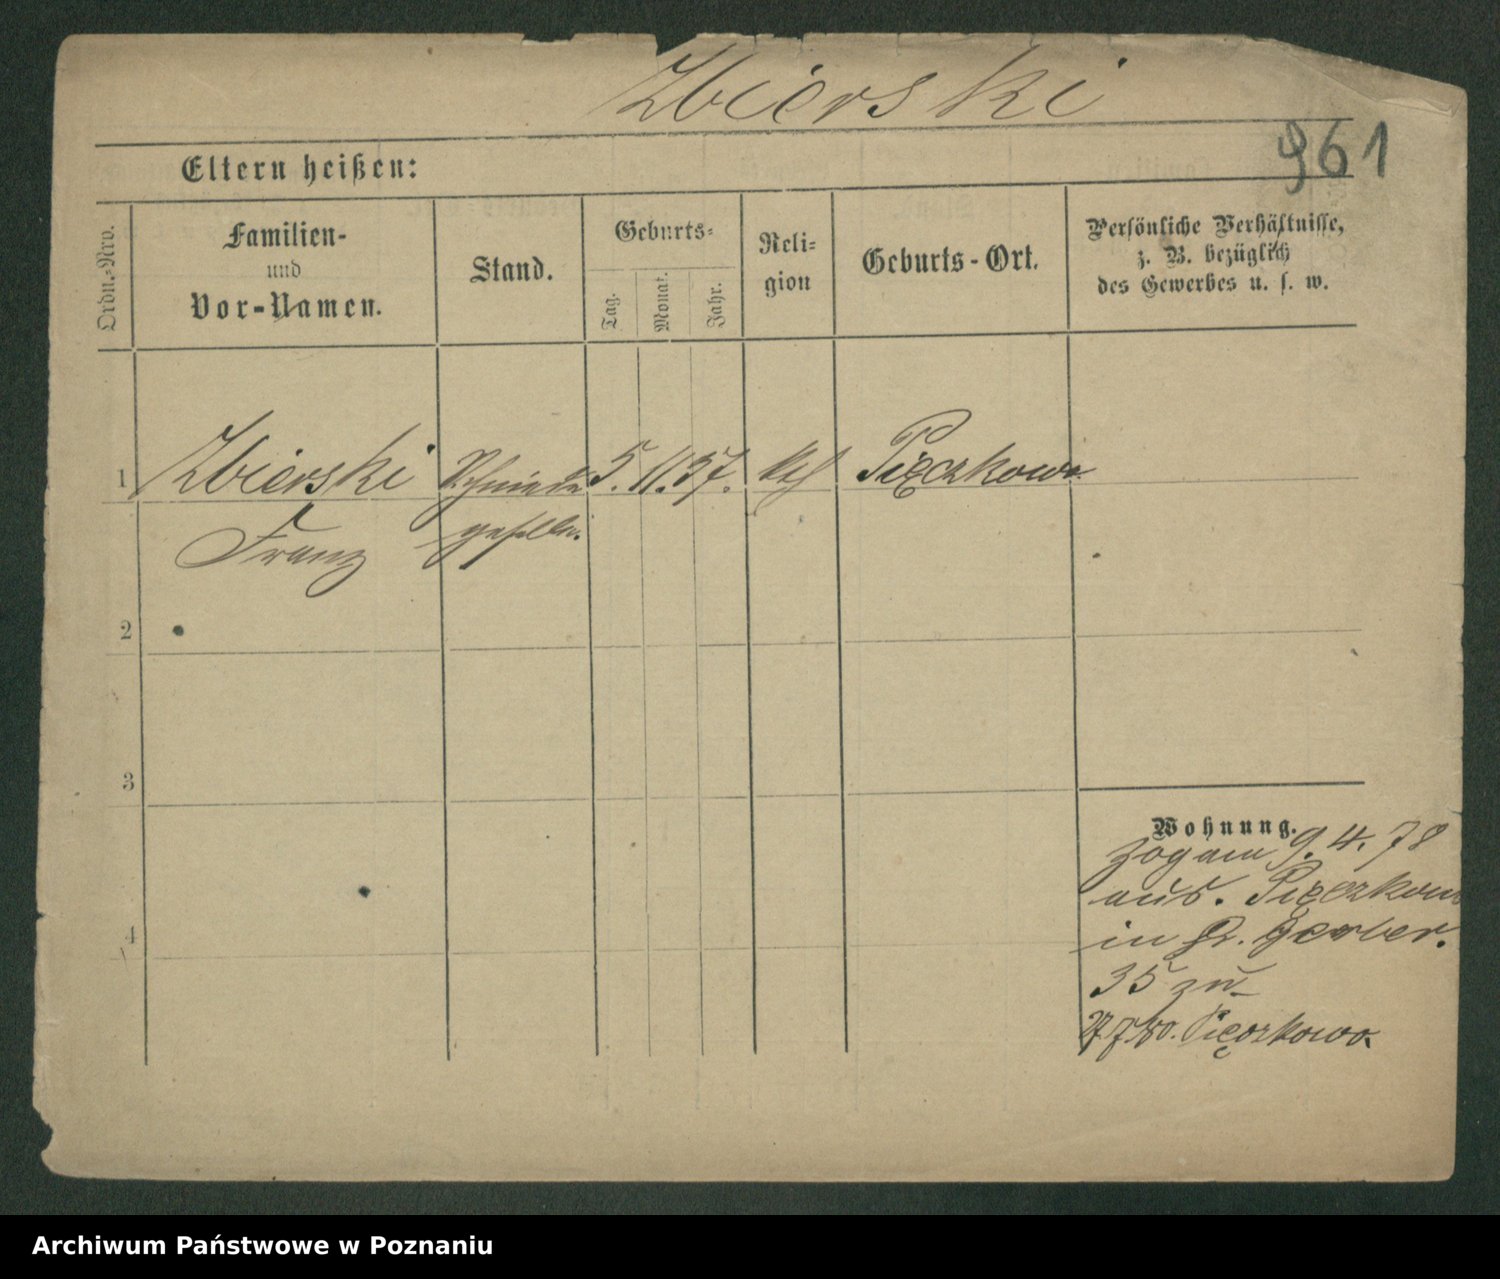 Zbierski
961
Eltern heißen:
Ordn.-Nro.
Familien-
und
Vor-Namen.
Stand.
Geburts-
Tag.
Monat.
Jahr.
Reli-
gion
Geburts-Ort.
Persönliche Verhältnisse,
z. B. bezüglich
des Gewerbes u. s. w.
1 Zbierski Schmiede 5. 11. 37. kth Pięczkowo
Franz geselle.
2
3
4
Wohnung.
zog am 9. 4. 78
aus. Pięczkowo
in Gr. Gerber.
35 zu
Pięczkowo
Archiwum Państwowe w Poznaniu